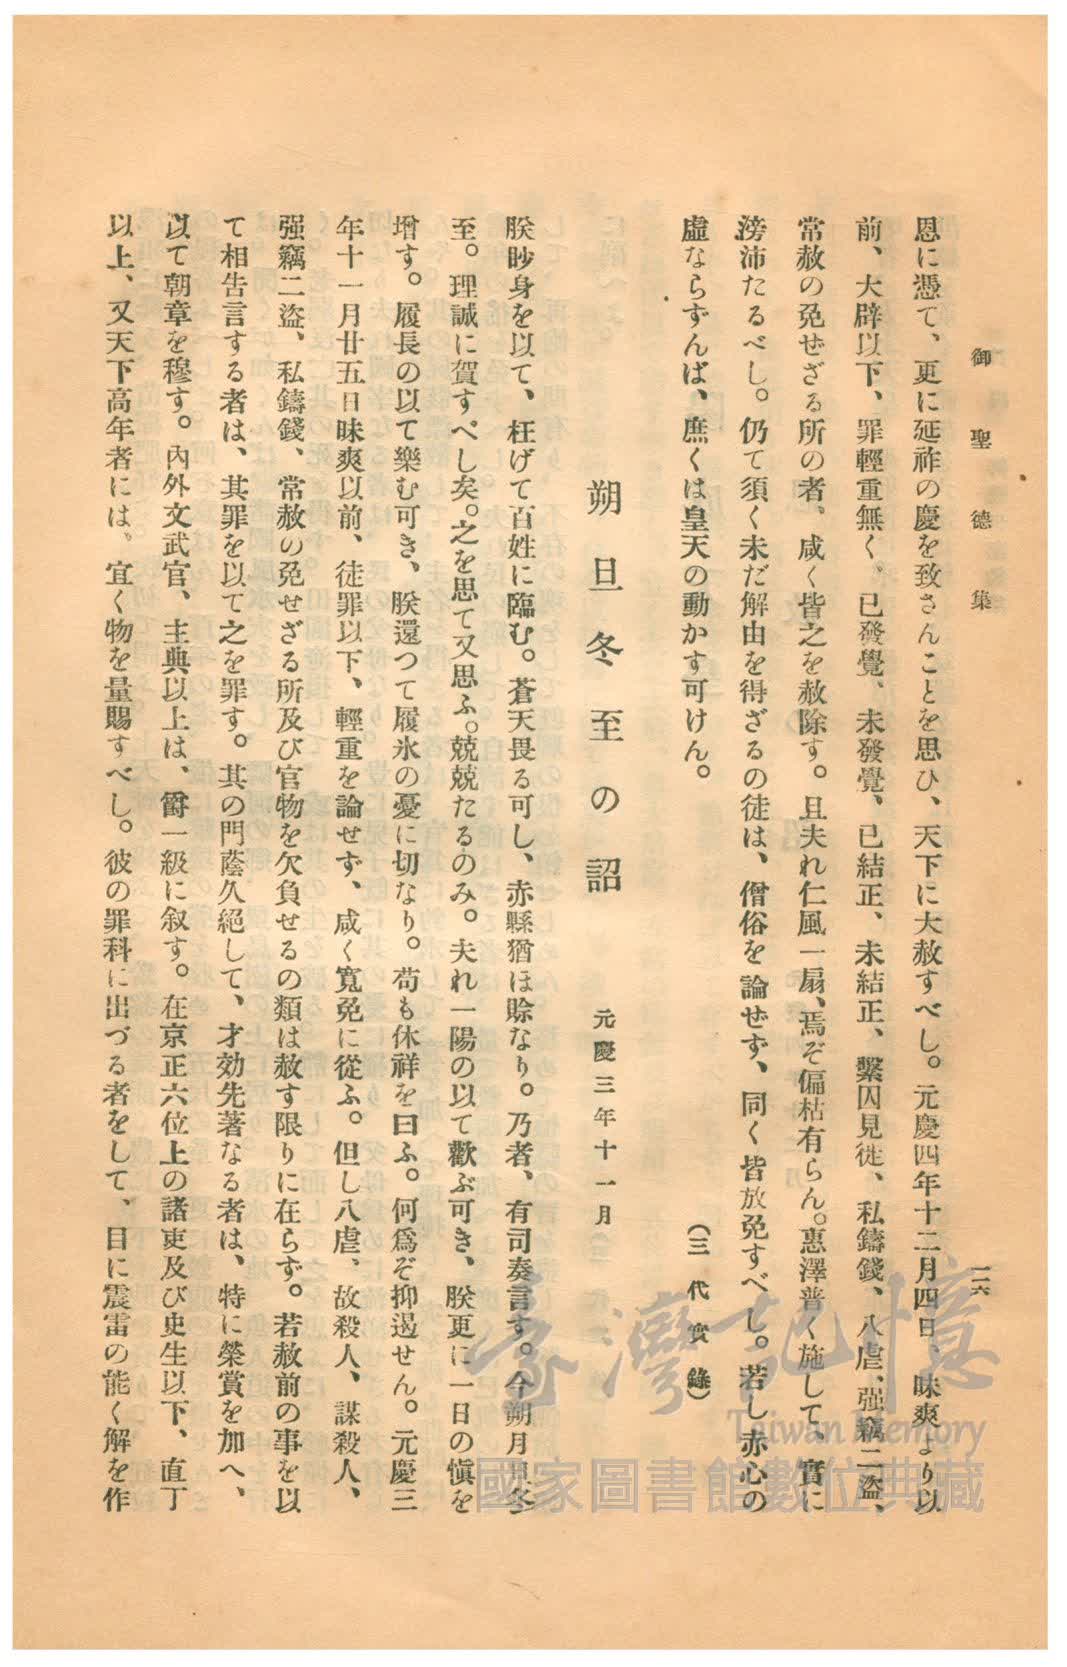 御聖德集
一一六
恩に憑て、更に延祚の慶を致さんことを思ひ、天下に大赦すべし。元慶四年十二月四日、昧爽より以
前、大辟以下、罪輕重無く、已發覺、未發覺、已結正、未結正、繫囚見徒、私鑄錢、八虐、强竊二盜、
常赦の免ぜざる所の者、咸く皆之を赦除す。且夫れ仁風一扇、焉ぞ偏枯有らん。惠澤普く施して、實に
滂沛たるべし。仍て須く未だ解由を得ざるの徒は、僧俗を論ぜず、同く皆放免すべし。若し赤心の
虛ならずんば、庶くは皇天の動かす可けん。
（三代實錄）
朔旦冬至の詔
元慶三年十一月
朕眇身を以て、枉げて百姓に臨む。蒼天畏る可し、赤縣猶ほ賒なり。乃者、有司奏言す。今朔月旦冬
至。理誠に賀すべし矣。之を思て又思ふ。兢兢たるのみ。夫れ一陽の以て歡ぶ可き、朕更に一日の愼を
增す。履長の以て樂む可き、朕還つて履氷の憂に切なり。苟も休祥を曰ふ。何爲ぞ抑遏せん。元慶三
年十一月廿五日昧爽以前、徒罪以下、輕重を論せず、咸く寬免に從ふ。但し八虐、故殺人、謀殺人、
强竊二盜、私鑄錢、常赦の免せざる所及び官物を欠負せるの類は赦す限りに在らず。若赦前の事を以
て相告言する者は、其罪を以て之を罪す。其の門蔭久絕して、才効先著なる者は、特に榮賞を加へ、
以て朝章を穆す。內外文武官、主典以上は、爵一級に叙す。在京正六位上の諸吏及び史生以下、直丁
以上、又天下高年者には、宜く物を量賜すべし。彼の罪科に出づる者をして、目に震雷の能く解を作
臺灣記憶
Taiwan Memory
國家圖書館數位典藏